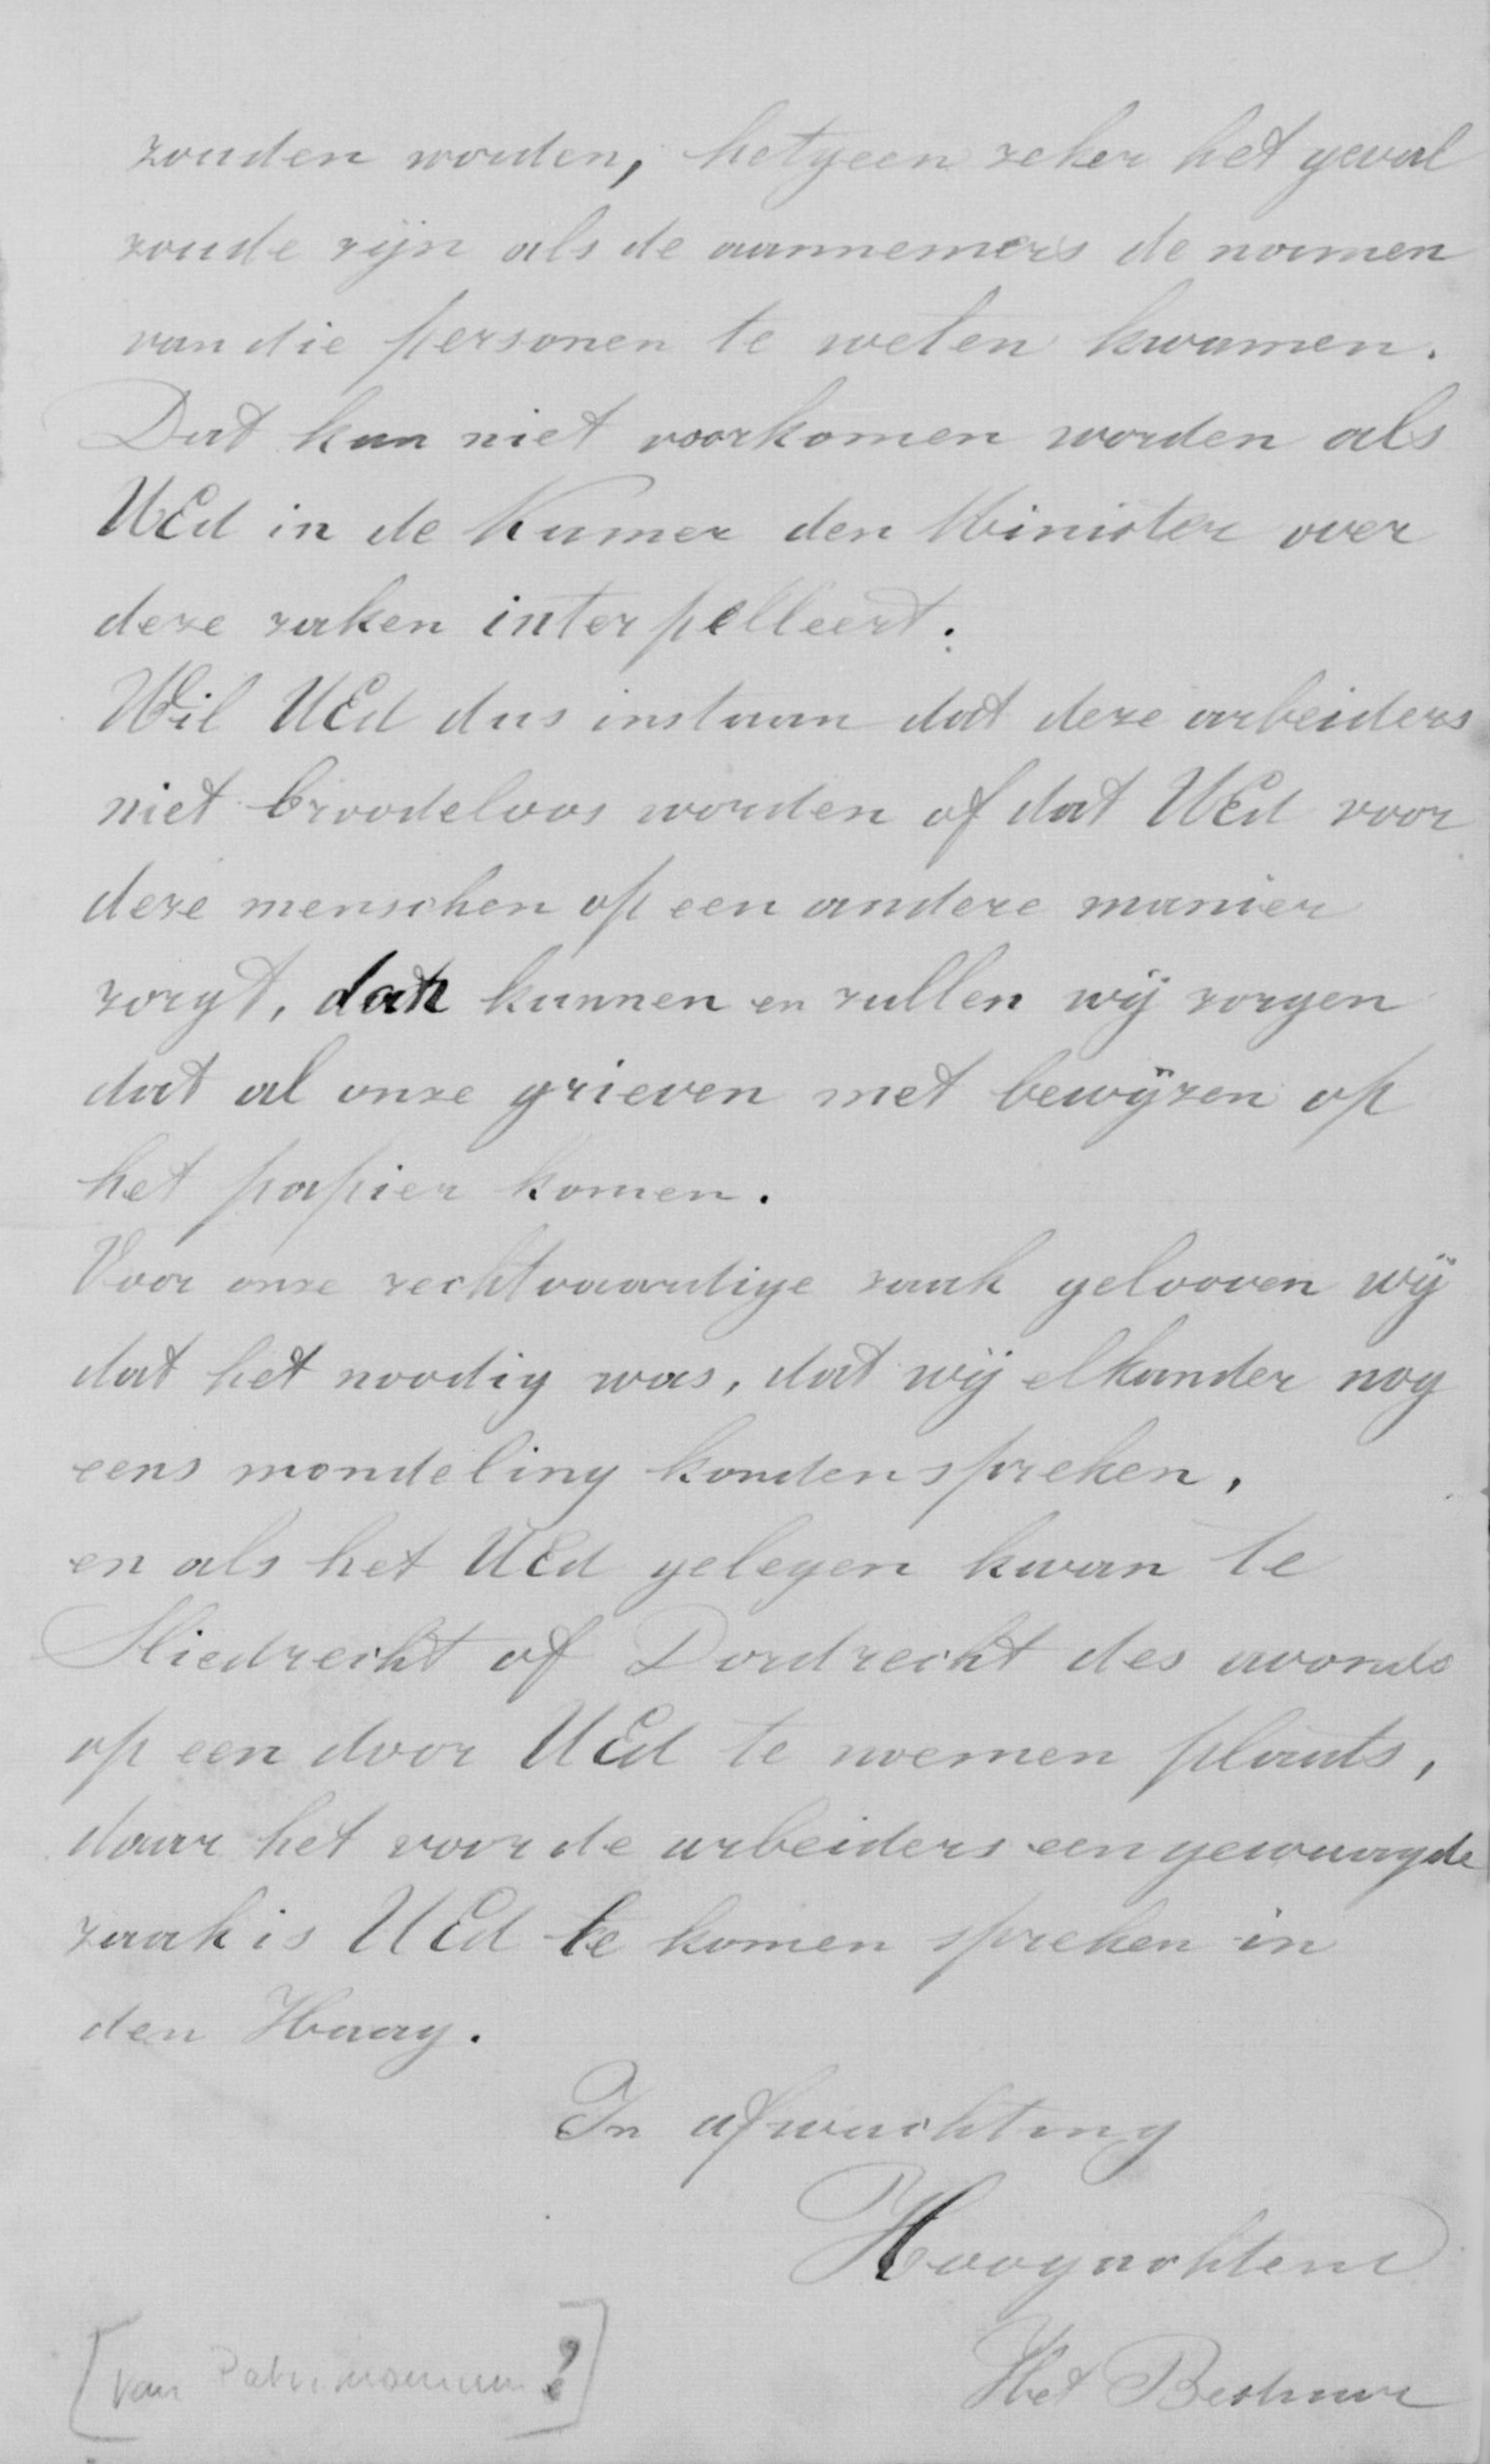 zouden worden, hetgeen zeker het geval
zoude zijn als de aannemers de namen
van die personen te weten kwamen.
Dat kan niet voorkomen worden als
UEd in de Kamer den Minister over
deze zaken interpelleert.
Wil UEd dus instaan dat deze arbeiders
niet broodeloos worden of dat UEd voor
deze menschen op een andere manier
zorgt, dan kunnen en zullen wij zorgen
dat al onze grieven met bewijzen op
het papier komen.
Voor onze rechtvaardige zaak gelooven wij
dat het noodig was, dat wij elkander nog
eens mondeling konden spreken,
en als het UEd gelegen kwam te
Sliedrecht of Dordrecht des avonds
op een door UEd te noemen plaats,
daar het voor de arbeiders een gewaagde
zaak is UEd te komen spreken in
den Haag.
In afwachting
Hoogachtend
Het Bestuur
[van Patrimonium?]